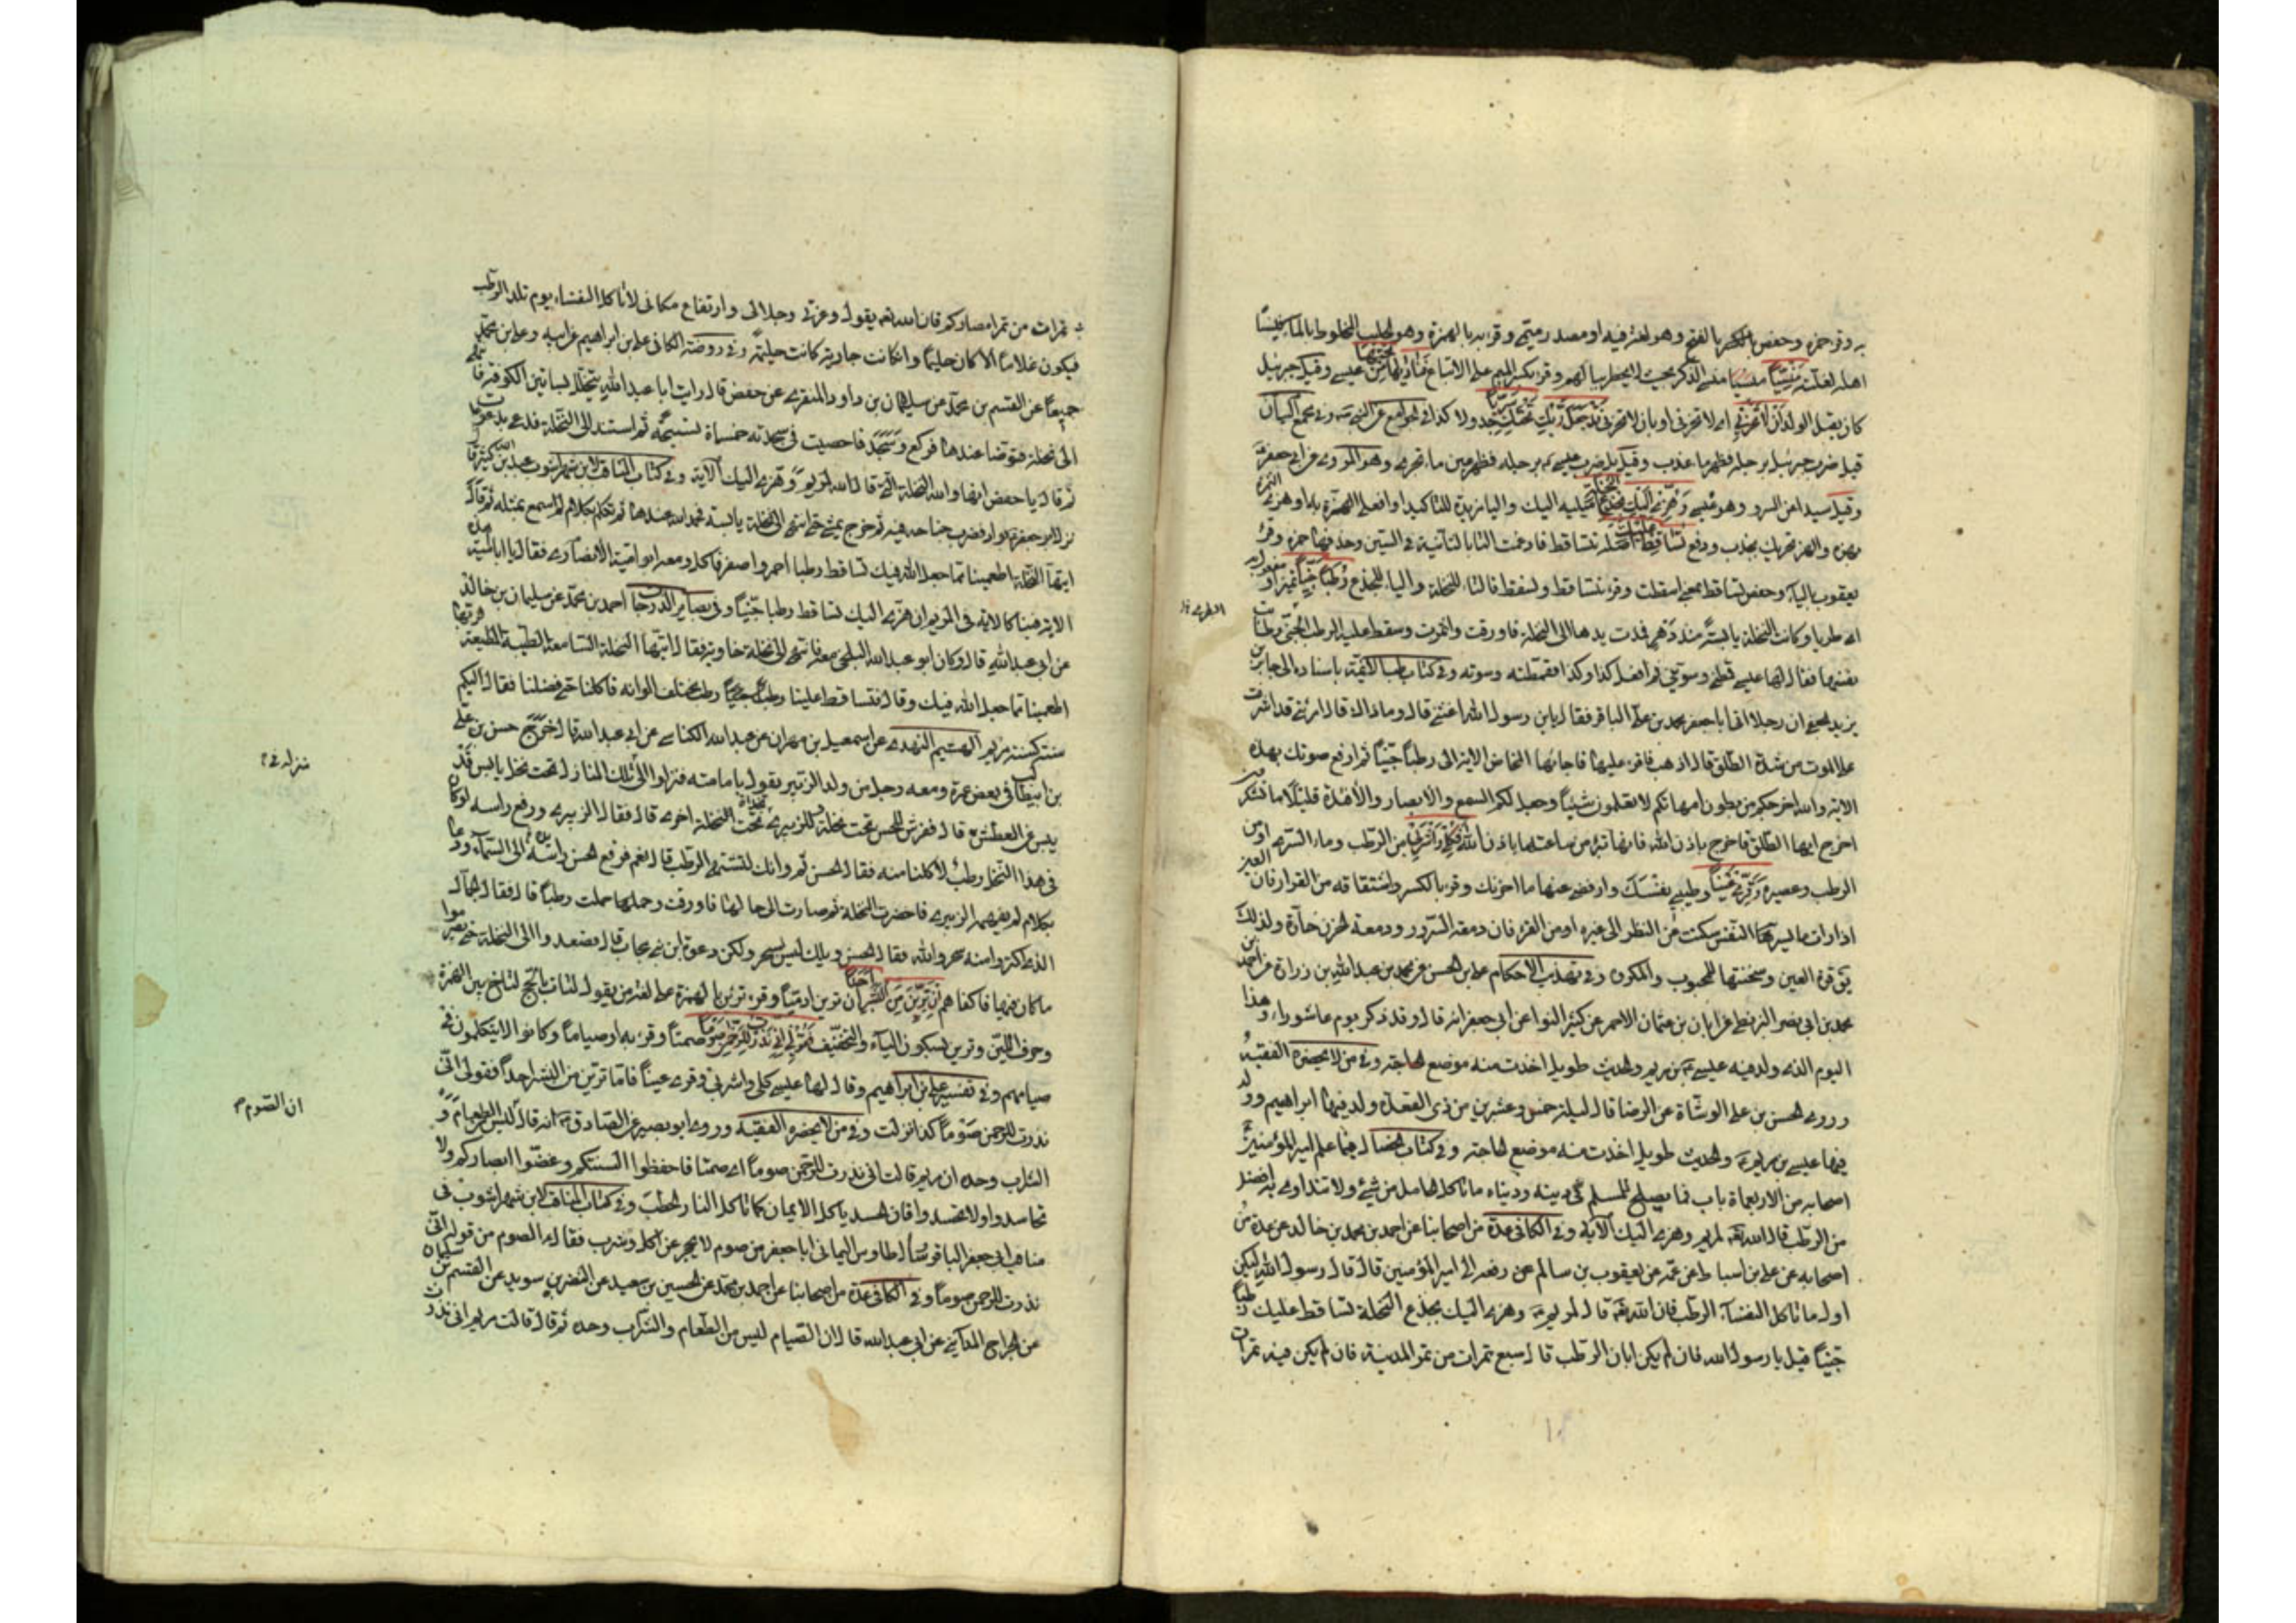 به وقرء حمزه وحفص بالفتح وهو لغة فيه او مصدر سمّى وقرء به بالهمزة وهو الحليب المخلوط بالماء
اهله لقلته منسيّا منسى الذكر بحيث لا يخطر ببالهم وقرء بكسر الميم على الاتباع فناديها من تحتها عيسى وقيل جبرئيل
كان يقبل الولد ألّا تحزنى اى لا تحزنى او بان لا تحزنى قد جعل ربّك تحتك سريّا جدولا كذا فى الجوامع عن النبى وفى مجمع البيان
قيل ضرب جبرئيل برجله فظهر ماء عذب وقيل بل ضرب عيسى برجله فظهر عين ماء تجرى وهو المروى عن ابى جعفر
وقيل سيدا من السرو وهو عيسى وهزّى اليك بجذع النخلة اميليه اليك والباء مزيدة للتاكيد او افعلى الهزّ به او هزى الثمرة
بهزه والهز تحريك بجذب ودفع تساقط عليك اصله تتساقط فادغمت التاء الثانية فى السين وحذفها حمزه وقرء
يعقوب بالياء وحفص تساقط بمعنى اسقطت وقرء تتساقط وتسقط فالتاء للنخلة والياء للجذع رطبا جنيّا تميز او مفعول به
اى طريا وكانت النخلة يابسة منذ دهر فمدت يدها الى النخلة فاورقت واثمرت وسقط عليها الرطب الجنى وطابت
نفسها فقال لها عيسى قمطينى وسوينى ثم افعل كذا وكذا فقمطته وسوته وفى كتاب طب الائمة باسناده الى جابر بن
يزيد الجعفى ان رجلا اتى ابا جعفر محمد بن على الباقر فقال يا بن رسول الله اغثنى قال وما ذاك قال امرئتى قد اشرفت
على الموت من شدة الطلق قال اذهب فاقرء عليها فاجاءها المخاض الاية الى رطبا جنيّا ثم ارفع صوتك بهذه
الاية والله اخرجكم من بطون امهاتكم لا تعلمون شيئا وجعل لكم السمع والابصار والافئدة قليلا ما تشكرون
اخرج ايها الطلق فاخرج باذن الله فانها تبرء من ساعتها باذن الله فكلى واشربى من الرطب وماء السرى او من
الرطب وعصيره وقرّى عينا وطيبى نفسك وارفضى عنها ما احزنك وقرء بالكسر واشتقاقه من القرار فان العين
اذا رات ما يسر بها النفس سكنت من النظر الى غيره او من القر فان دمعة السرور ودمعة الحزن حارة ولذلك
يق قرة العين وسخنتها للمحبوب والمكروه وفى تهذيب الاحكام على بن الحسن عن محمد بن عبد الله بن زرارة عن احمد بن
محمد بن ابى نصر البزنطى عن ابان بن عثمان الاحمر عن كثير النوا عن ابى جعفر انه قال وقد ذكر يوم عاشوراء وهذا
اليوم الذى ولد فيه عيسى بن مريم والحديث طويل اخذت منه موضع الحاجة وفى من لا يحضره الفقيه
وروى الحسن بن على الوشاء عن الرضا قال ليلة خمس وعشرين من ذى القعدة ولد فيها ابراهيم وولد
فيها عيسى بن مريم والحديث طويل اخذت منه موضع الحاجة وفى كتاب الخصال فيما علم امير المؤمنين
اصحابه من الاربعماة باب مما يصلح للمسلم فى دينه ودنياه ما تاكل الحامل من شئ ولا تتداوى به افضل
من الرطب قال الله تعه لمريم وهزى اليك الآية وفى الكافى عدة من اصحابنا عن احمد بن محمد بن خالد عن عدة من
اصحابه عن على بن اسباط عن عمه عن يعقوب بن سالم عمن رفعه الى امير المؤمنين قال قال رسول الله ليكن
اول ما تاكل النفساء الرطب فان الله تعه قال لمريم وهزى اليك بجذع النخلة تساقط عليك رطبا
جنيّا قيل يا رسول الله فان لم يكن ابان الرطب قال سبع تمرات من تمر المدينة فان لم يكن فسبع تمرات
تمرات من تمر امصاركم فان الله تعه يقول وعزتى وجلالى وارتفاع مكانى لا تاكل النفساء يوم تلد الرطب
فيكون غلاما الا كان حليما وان كانت جارية كانت حليمة وفى روضة الكافى على بن ابراهيم عن ابيه وعلى بن محمد
جميعا عن القسم بن محمد عن سليمان بن داود المنقرى عن حفص قال رايت ابا عبد الله يتخلل بساتين الكوفة فانتهى
الى نخلة فتوضا عندها فركع وسجد فاحصيت فى سجدته خمسماة تسبيحة ثم استند الى النخلة فدعى بدعوات
ثم قال يا حفص انها والله النخلة التى قال الله لمريم وهزى اليك الآية وفى كتاب المناقب لابن شهراشوب عبد الله بن كثير قال
نزل ابو جعفر بواد فضرب خباءه فيه ثم خرج يمشى حتى انتهى الى نخلة يابسة فحمد الله عندها ثم تكلم بكلام لم اسمع بمثله ثم قال
ايتها النخلة اطعمينا مما جعل الله فيك فتساقط رطبا احمر واصفر فاكل ومعه ابو امية الانصارى فقال يا ابا امية هذه
الاية فينا كالاية فى مريم ان هزى اليك تساقط رطبا جنيّا وفى بصائر الدرجات احمد بن محمد عن سليمان بن خالد
عن ابى عبد الله قال وكان ابو عبد الله البلخى معه فانتهى الى نخلة خاوية فقال ايتها النخلة السامعة المطيعة لربها
اطعمينا مما جعل الله فيك وقال فتساقط علينا رطب مختلف الوانه فاكلنا حتى تضلعنا فقال اليكم
سنة كسنة مريم الهيثم النهدى عن اسمعيل بن مهران عن عبد الله الكناسى عن ابى عبد الله قال خرج حسن بن على
بن ابيطالب فى بعض عمره ومعه رجل من ولد الزبير يقول بامامته فنزلوا الى تلك المنازل تحت نخل يابس قد
يبس من العطش قال ففرش للحسن تحت نخلة وللزبيرى بحذاه تحت النخلة اخرى قال فقال الزبيرى ورفع راسه لو كان
فى هذا النخل رطب لاكلنا منه فقال الحسن ثم وانك لتشتهى الرطب قال نعم فرفع الحسن يده الى السماء ودعا
بكلام لم يفهمه الزبيرى فاخضرت النخلة ثم صارت الى حالها فاورقت وحملت رطبا قال فقال الجمال
الذى اكتروا منه سحر والله فقال الحسن ويلك ليس بسحر ولكن دعوة ابن نبى مجاب قال فصعدوا الى النخلة حتى تصرموا
ما كان فيها فاكفاهم فامّا ترينّ من البشر احدا فان ترين ادميّا وقرء ترئن بالهمزة على لغة من يقول لبّات بالحج لتاخ بين الهمزة
وحرف اللين وترين بسكون الياء والتخفيف فقولى انّى نذرت للرّحمن صوما صمتا وقرء به او صياما وكانوا لا يتكلمون فى
صيامهم وفى تفسير على بن ابراهيم وقال لها عيسى كلى واشربى وقرى عينا فاما ترين من البشر احدا فقولى انى
نذرت للرحمن صوما كذا نزلت وفى من لا يحضره الفقيه وروى ابو بصير عن الصادق انه قال ليس الطعام و
الشراب وحده ان مريم قالت انى نذرت للرحمن صوما اى صمتا فاحفظوا السنتكم وغضوا ابصاركم ولا
تحاسدوا ولا فان الحسد ياكل الايمان كما تاكل النار الحطب وفى كتاب المناقب لابن شهراشوب فى
مناقب ابى جعفر الباقر وسأل طاوس اليمانى ابا جعفر من صوم لا يحجز عن اكل وشرب فقال الصوم من قوله انى
نذرت للرحمن صوما وفى الكافى عدة من اصحابنا عن احمد بن محمد عن الحسين بن سعيد عن النضر بن سويد عن القسم بن سليمان
عن الجراح المداينى عن ابى عبد الله قال ان الصيام ليس من الطعام والشراب وحده ثم قال قالت مريم انى نذرت
ان الصوم